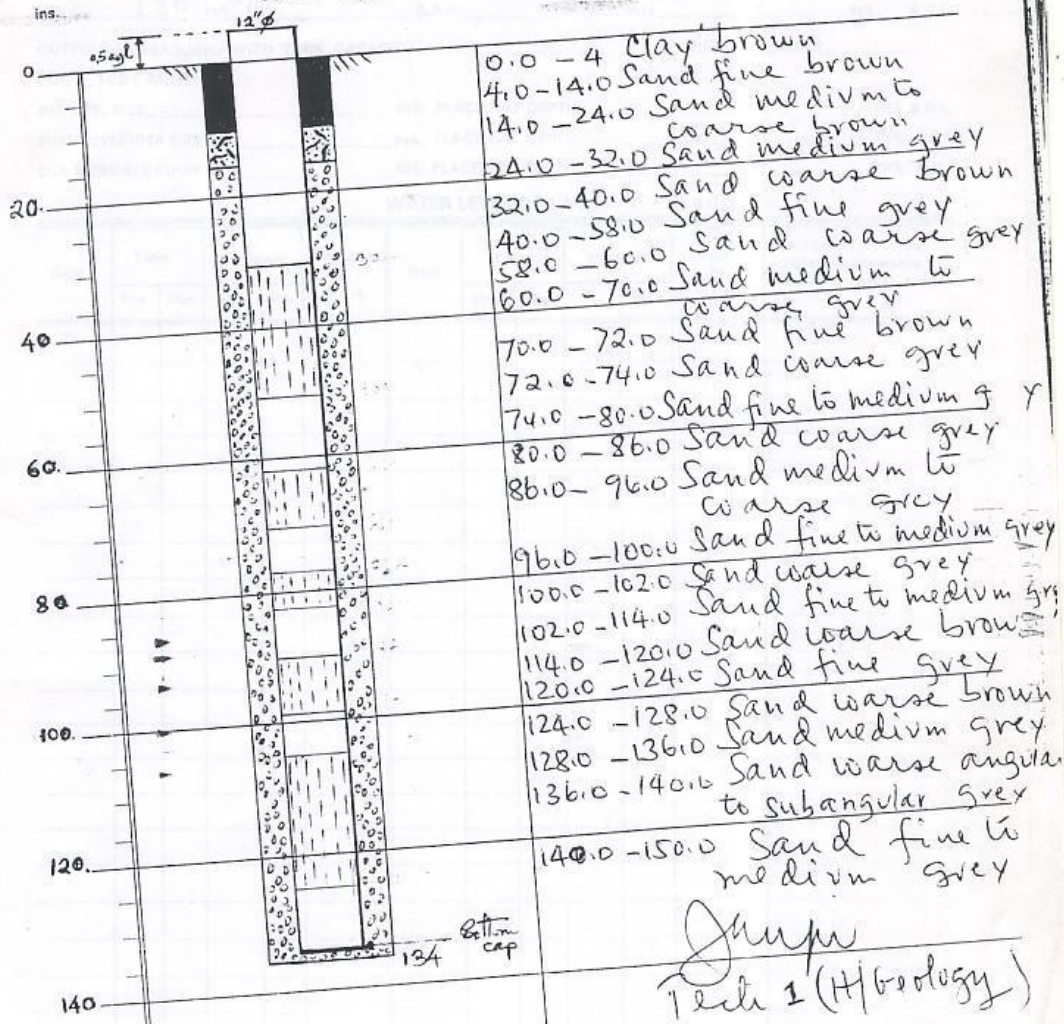 ins.
12"φ
0.5 agl.
0
20.
40
60.
80
100.
120.
140
134
Bottom cap
0.0 - 4 Clay brown
4.0 - 14.0 Sand fine brown
14.0 - 24.0 Sand medium to
coarse brown
24.0 - 32.0 Sand medium grey
32.0 - 40.0 Sand coarse brown
40.0 - 58.0 Sand fine grey
58.0 - 60.0 Sand coarse grey
60.0 - 70.0 Sand medium to
coarse grey
70.0 - 72.0 Sand fine brown
72.0 - 74.0 Sand coarse grey
74.0 - 80.0 Sand fine to medium g y
80.0 - 86.0 Sand coarse grey
86.0 - 96.0 Sand medium to
coarse grey
96.0 - 100.0 Sand fine to medium grey
100.0 - 102.0 Sand coarse grey
102.0 - 114.0 Sand fine to medium gr
114.0 - 120.0 Sand coarse brow
120.0 - 124.0 Sand fine grey
124.0 - 128.0 Sand coarse brown
128.0 - 136.0 Sand medium grey
136.0 - 140.0 Sand coarse angular
to subangular grey
140.0 - 150.0 Sand fine to
medium grey
Tech 1 (H/Geology)